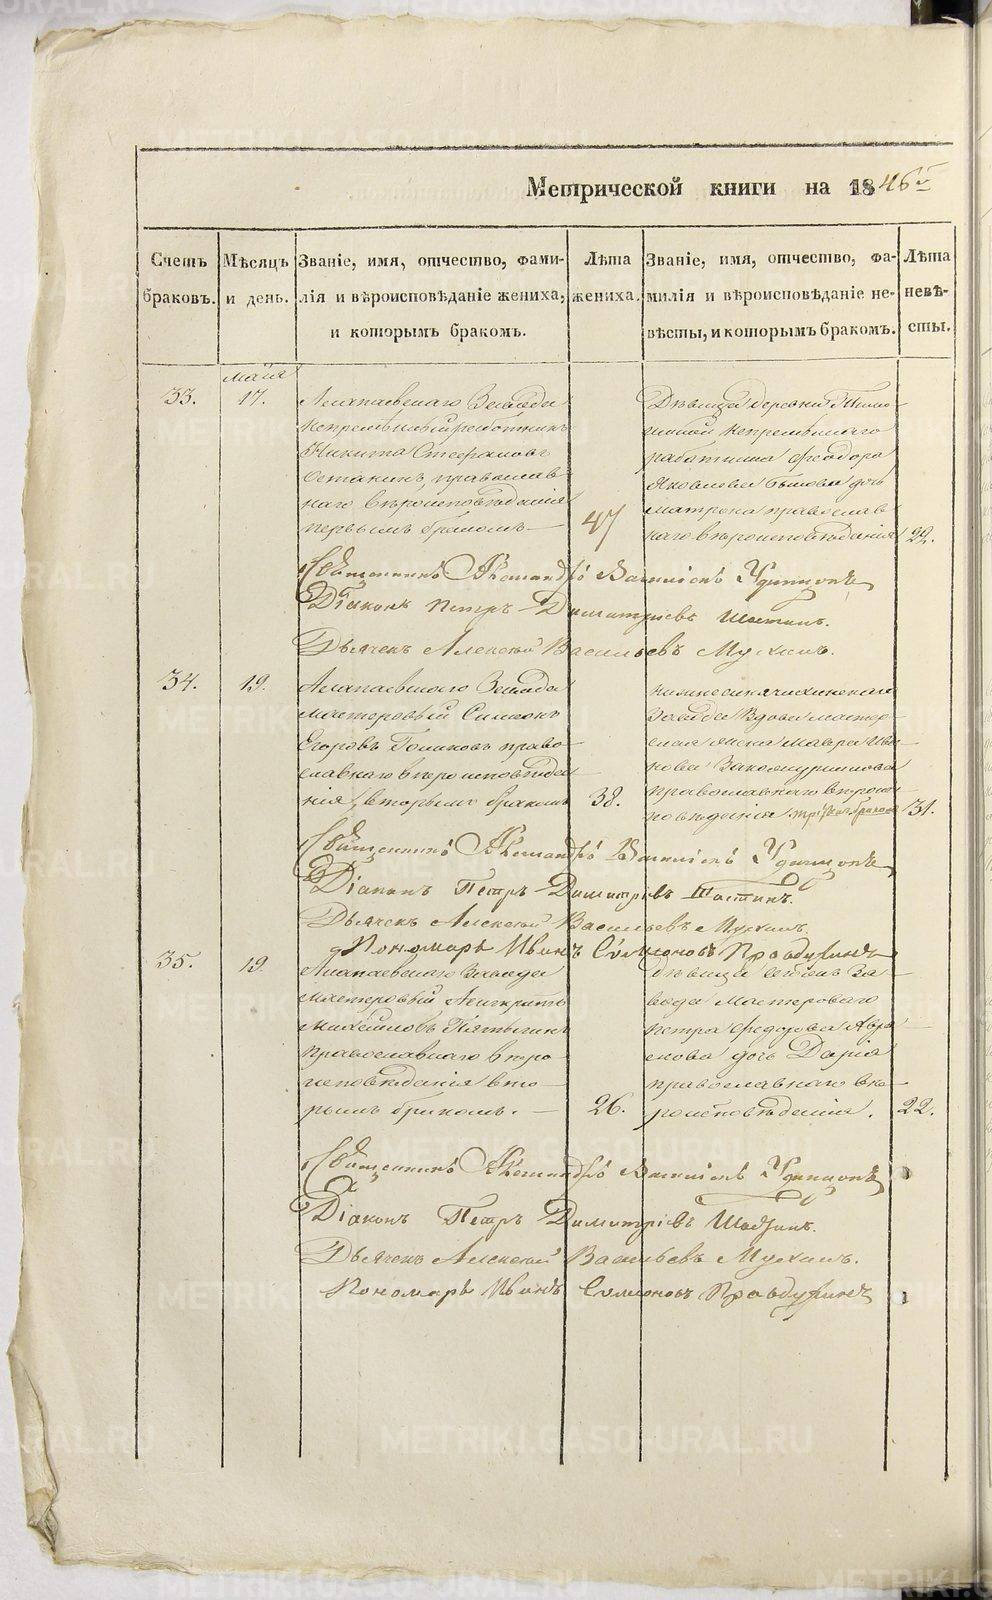 Метрической книги на 1846й
Счетъ браковъ.
Мѣсяцъ и день.
Званіе, имя, отчество, фами-
лія и вѣроисповѣданіе жениха,
и которымъ бракомъ.
Лѣта жениха.
Званіе, имя, отчество, фа-
милія и вѣроисповѣданіе не-
вѣсты, и которымъ бракомъ.
Лѣта невѣ-
сты.
33.
Маія
17.
Алапаевскаго Завода
непремѣнный работникъ
Никита Стефановъ
Останинъ православ
наго вѣроисповѣданія
первымъ бракомъ
47
Дѣвица деревни
непремѣннаго
работника Феодора
Яковлева дочь
Матрона православ
наго вѣроисповѣданія
22.
Священникъ Александръ Васильевъ Удинцовъ
Діаконъ Петръ Димитріевъ
Дьячекъ Алексѣй Васильевъ Мухинъ.
34.
19.
Алапаевскаго Завода
мастеровый Симеонъ
Егоровъ Голиковъ право
славнаго вѣроисповѣда
нія, вторымъ бракомъ
38.
Нижнесинячихинскаго
Завода Вдова мастер
Мавра Ива
нова
православнаго вѣроис
повѣданія бракомъ
31.
Священникъ Александръ Васильевъ Удинцовъ
Діаконъ Петръ Димитріевъ
Дьячекъ Алексѣй Васильевъ Мухинъ
Пономарь Иванъ Симеоновъ Правдухинъ
35.
19.
Алапаевскаго Завода
мастеровый
Михайловъ
православнаго вѣро
исповѣданія вто
рымъ бракомъ.
26.
Дѣвица За
вода мастероваго
Петра Федорова
дочь Дарія
православнаго вѣ
роисповѣданія.
22.
Священникъ Александръ Васильевъ Удинцовъ
Діаконъ Петръ Димитріевъ
Дьячекъ Алексѣй Васильевъ Мухинъ.
Пономарь Иванъ Симеоновъ Правдухинъ
METRIKI.GASO-URAL.RU